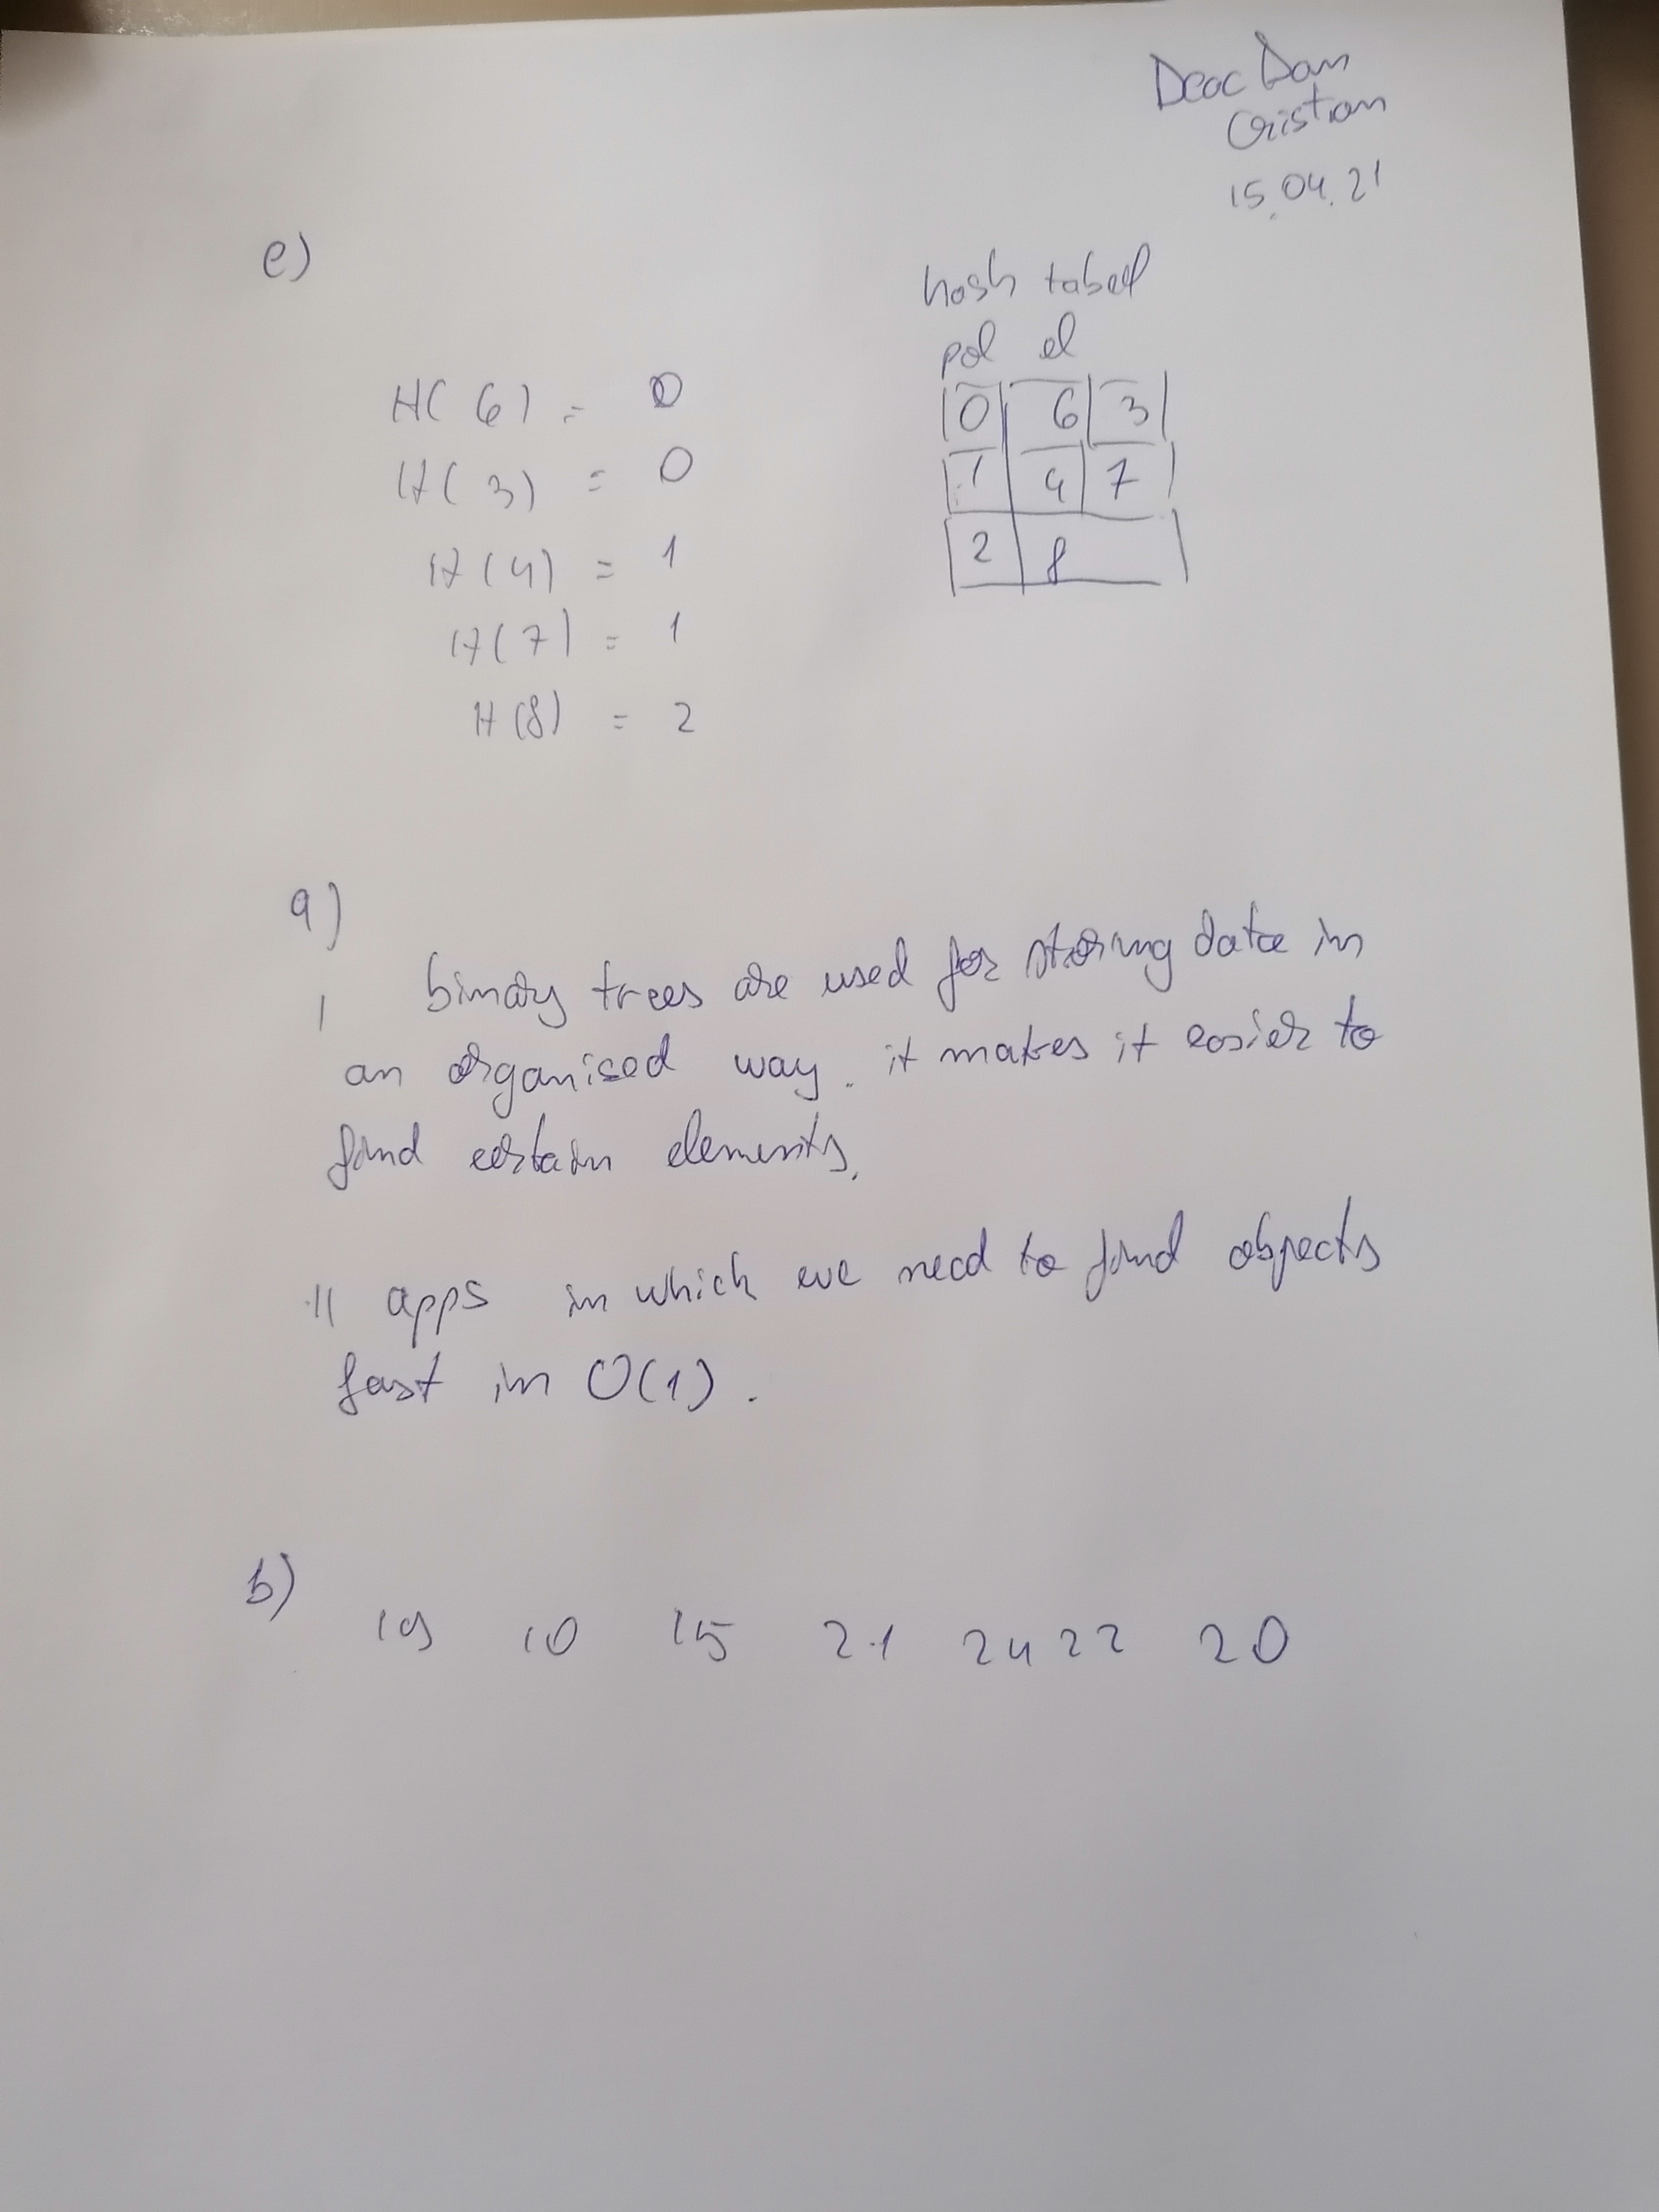 Deac Dan
Cristian
15.04.21
e)
hash tabel
pol el
H(6) = 0
H(3) = 0
H(4) = 1
H(7) = 1
H(8) = 2
0 6 3
1 4 7
2 8
a)
I binary trees are used for storing data in
an organised way. it makes it easier to
find certain elements.
II apps in which we need to find objects
fast in O(1).
b)
19 10 15 21 24 22 20